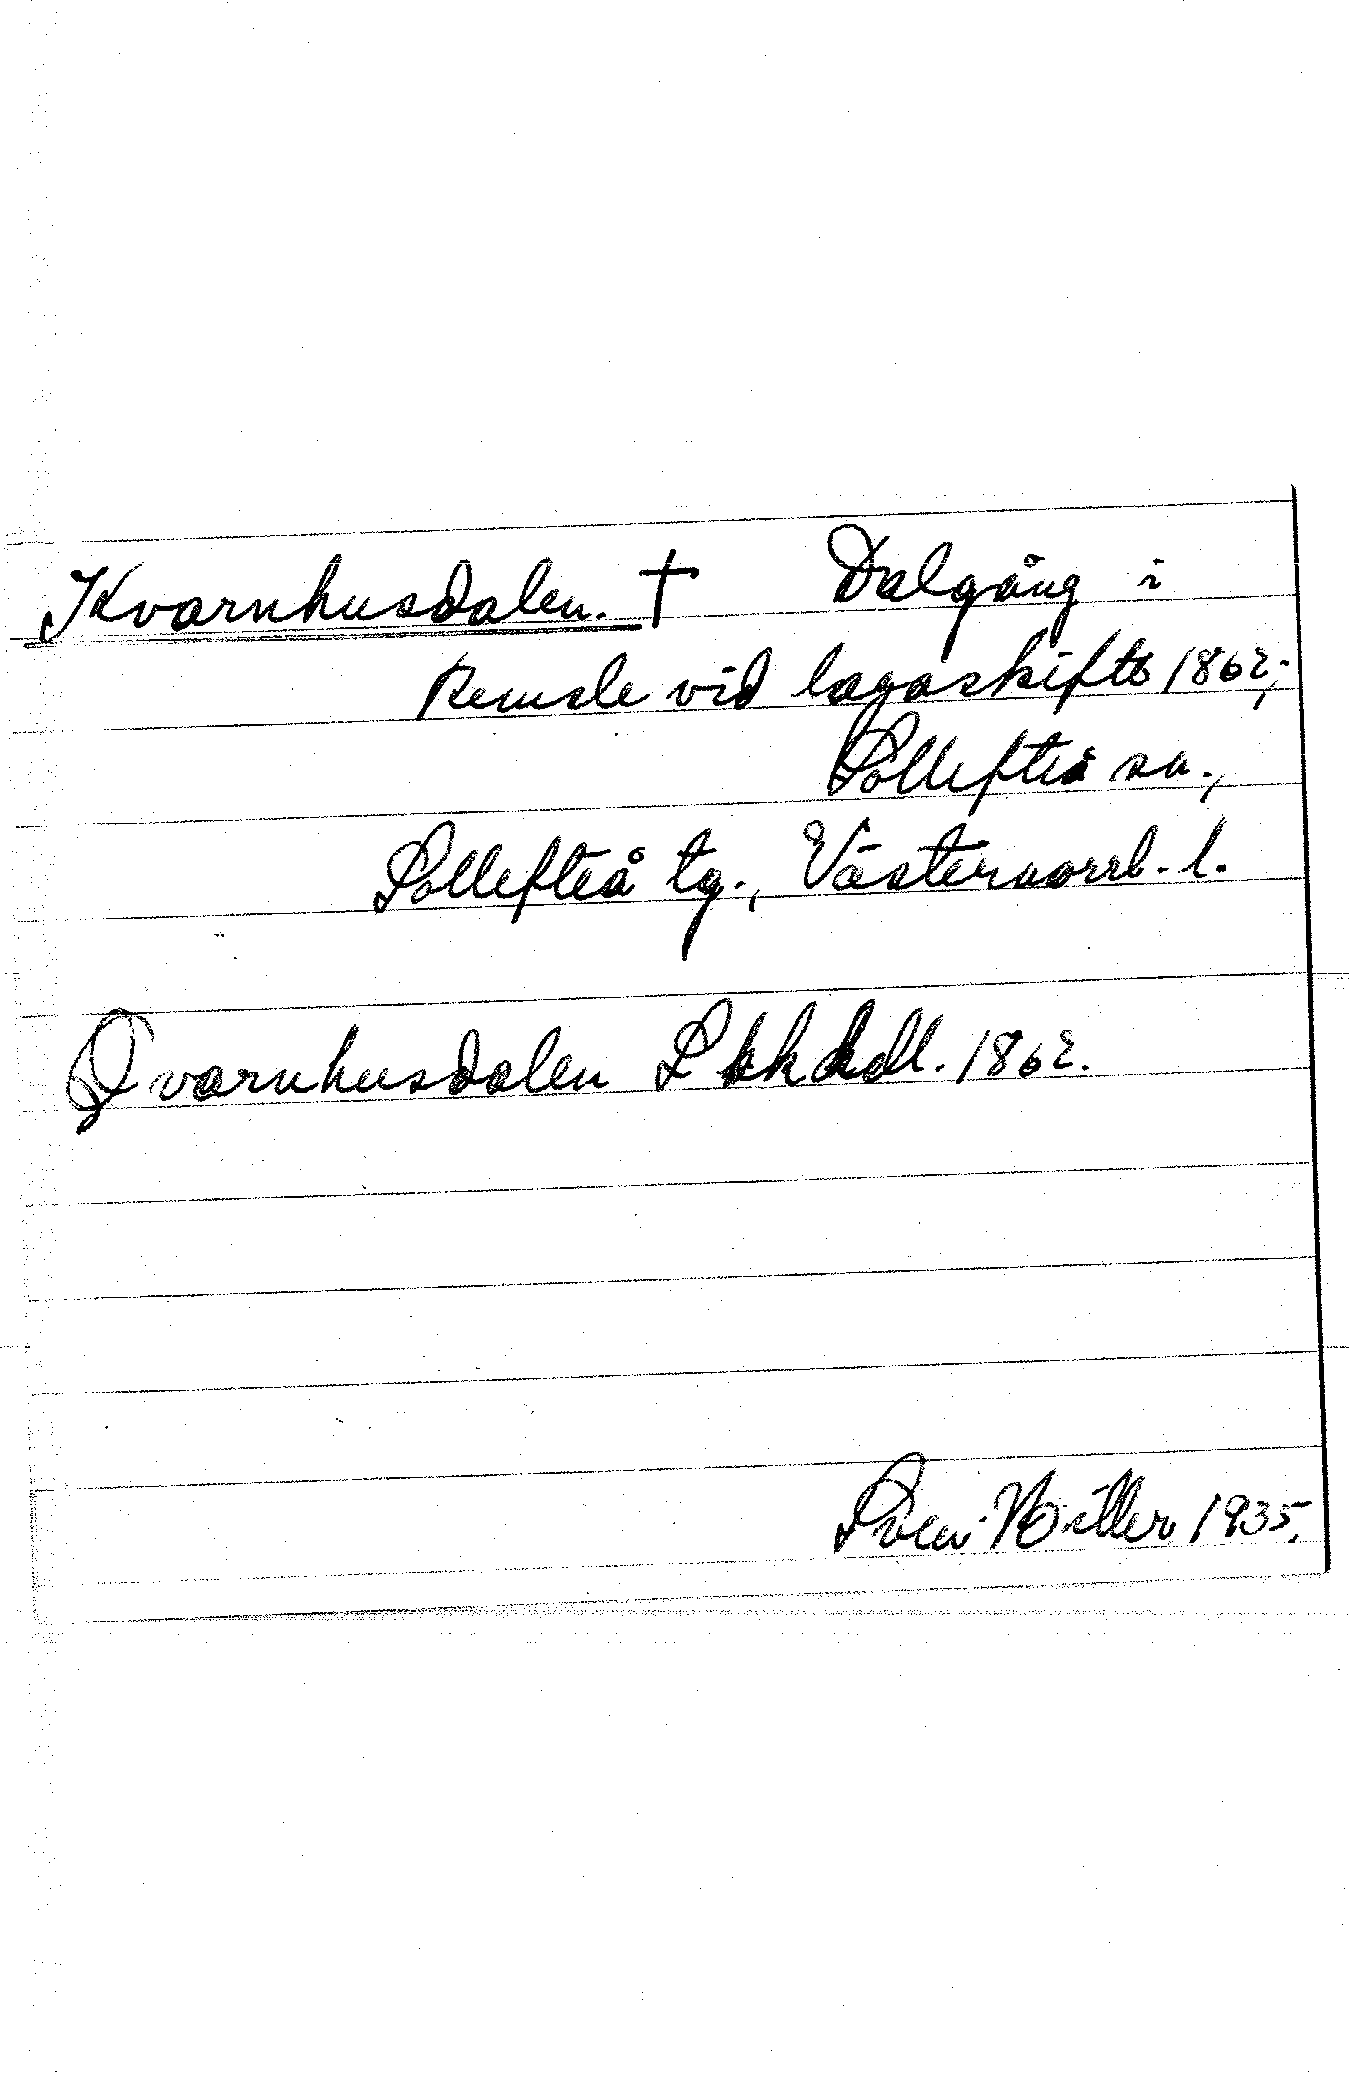 Kvarnhusdalen. † Dalgång i
Remsle vid lagaskifte 1862;
Sollefteå sn.,
Sollefteå tg., Västernorrl. l.
Qvarnhusdalen L hdl. 1862.
Sven 1935.